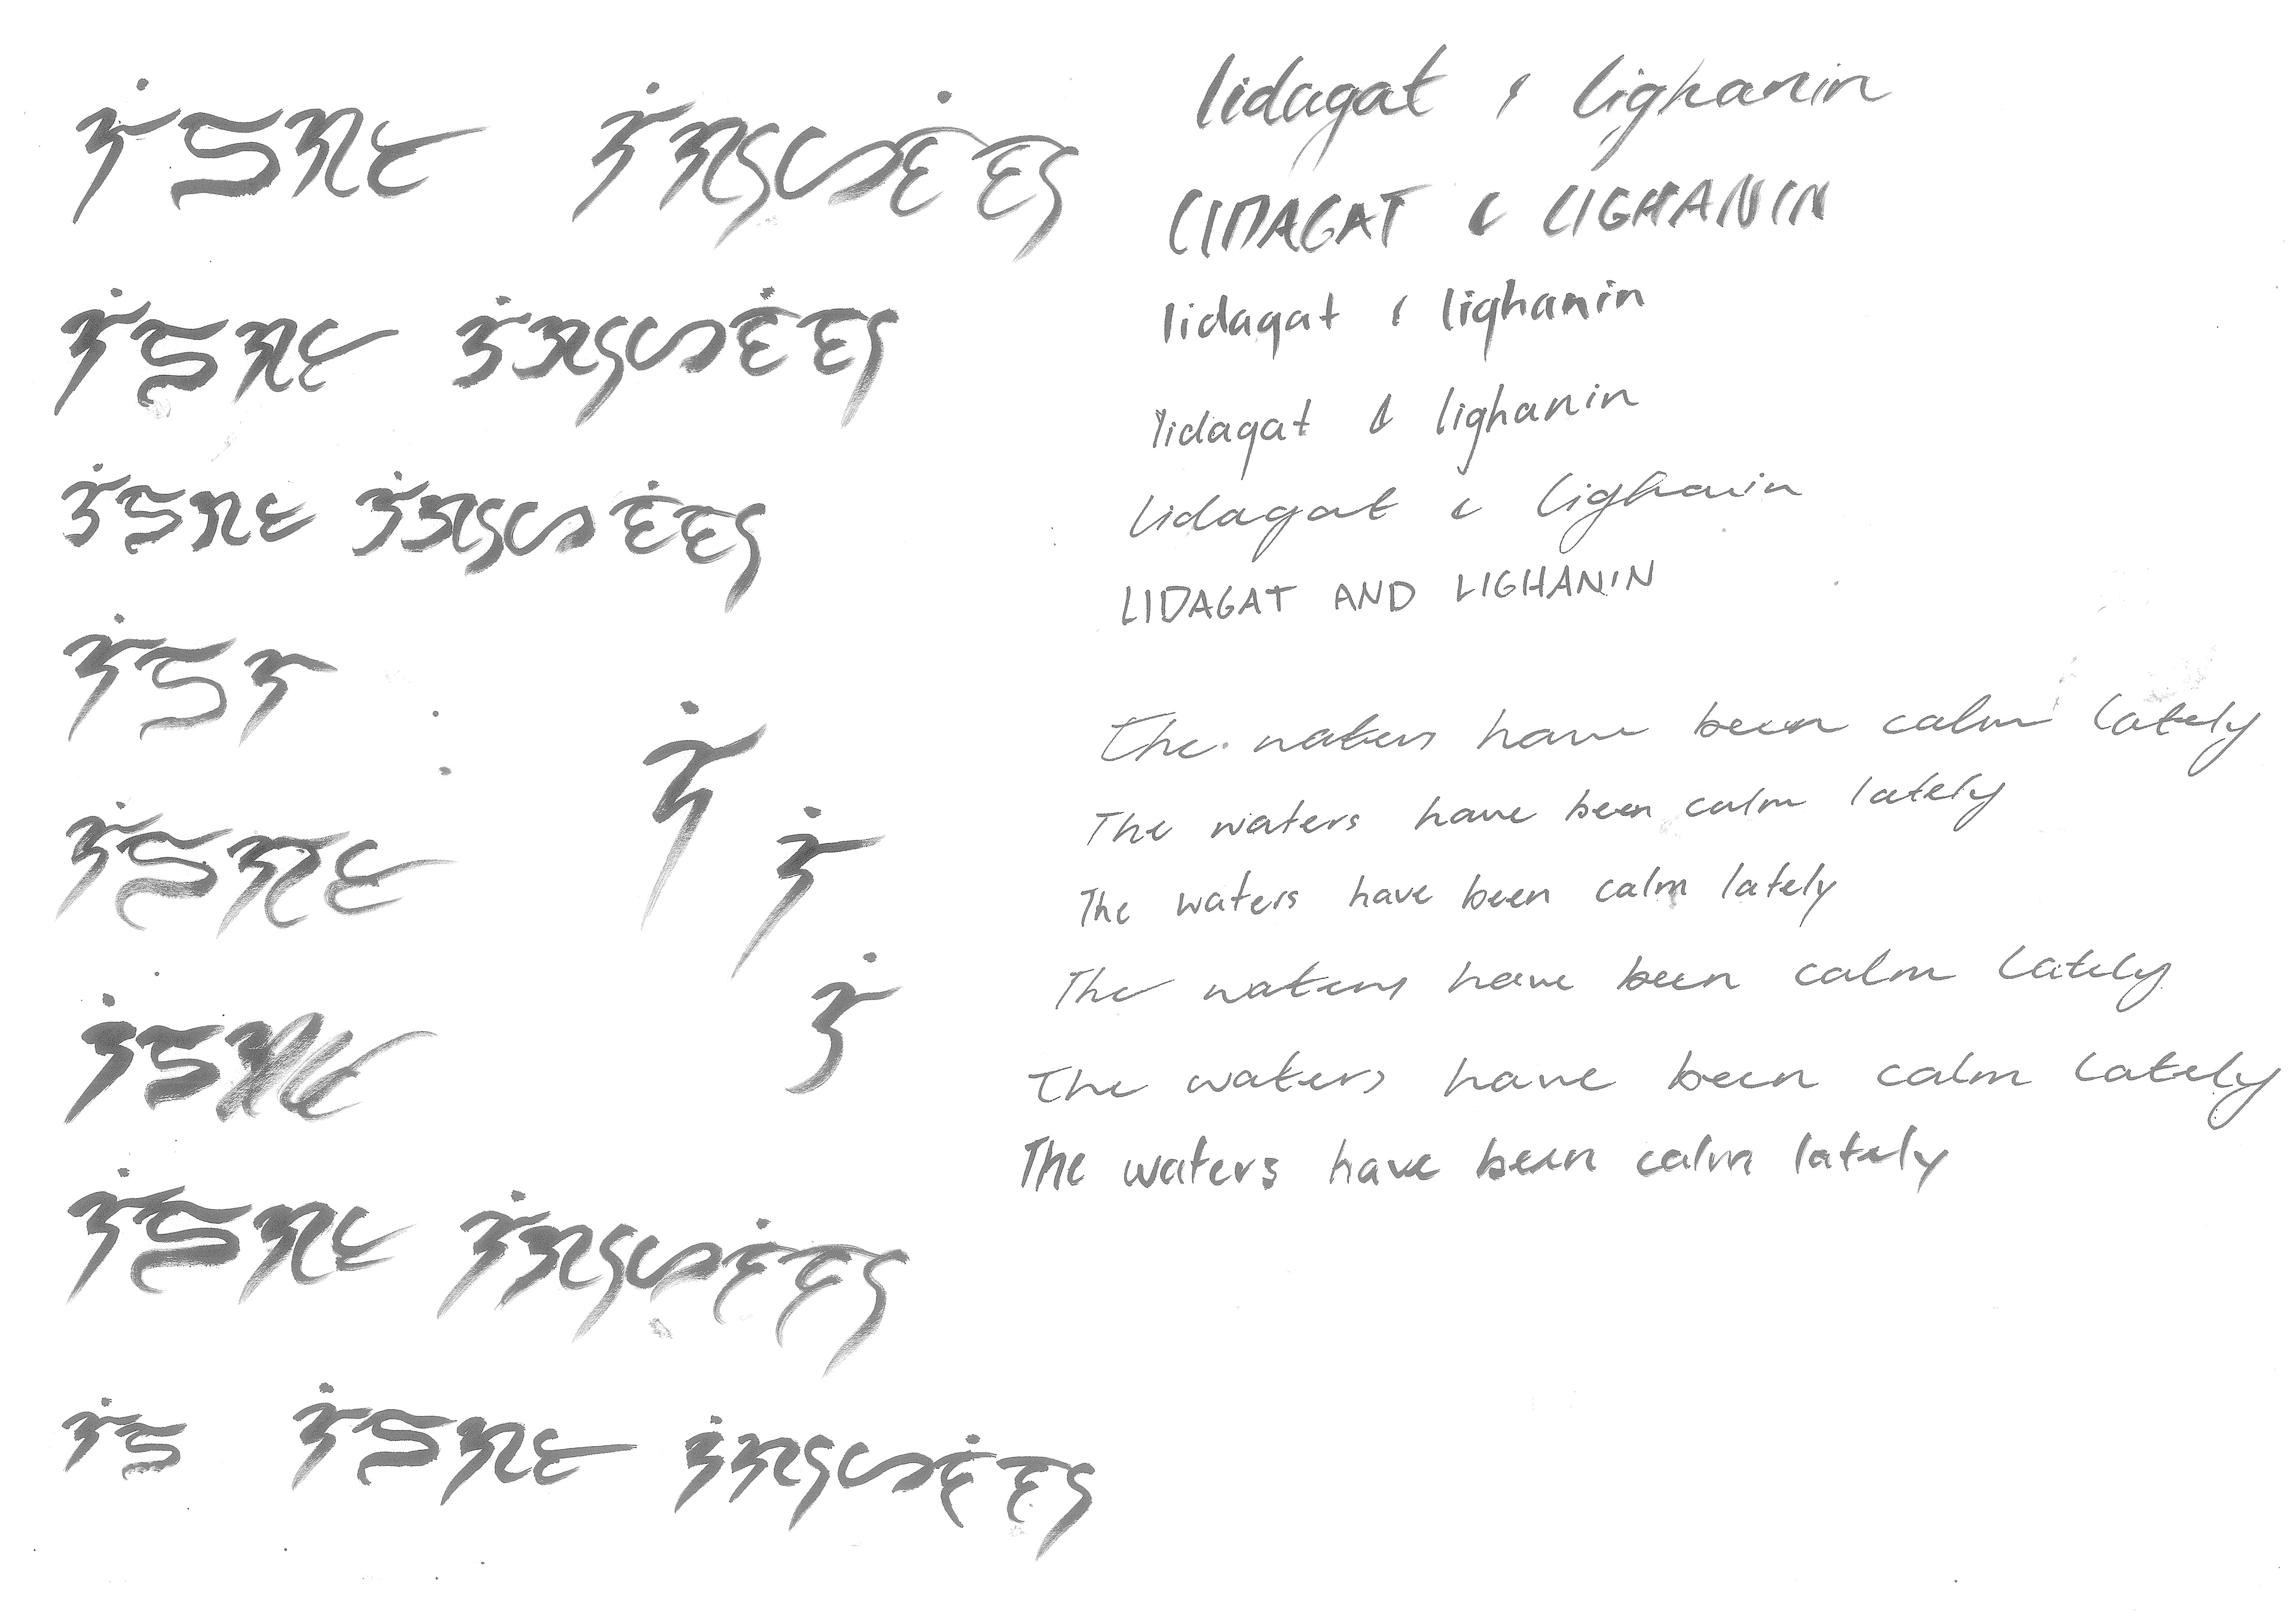 ᜎᜒᜇᜄᜆ ᜎᜒᜄ᜕ᜑᜈᜒᜈ᜕
ᜎᜒᜇᜄᜆ ᜎᜒᜄ᜕ᜑᜈᜒᜈ᜕
ᜎᜒᜇᜄᜆ ᜎᜒᜄ᜕ᜑᜈᜒᜈ᜕
ᜎᜒᜇ
ᜎᜒᜇᜄᜆ
ᜎᜒᜇ
ᜎᜒᜇᜄᜆ ᜎᜒᜄ᜕ᜑᜈᜒᜈ᜕
ᜎᜒᜇ ᜎᜒᜇᜄᜆ ᜎᜒᜄ᜕ᜑᜈᜒᜈ᜕
ᜎᜒ
ᜎᜒ
ᜎᜒ
lidagat & lighanin
LIDAGAT & LIGHANIN
lidagat & lighanin
lidagat & lighanin
lidagat & lighanin
LIDAGAT AND LIGHANIN
The waters have been calm lately
The waters have been calm lately
The waters have been calm lately
The waters have been calm lately
The waters have been calm lately
The waters have been calm lately